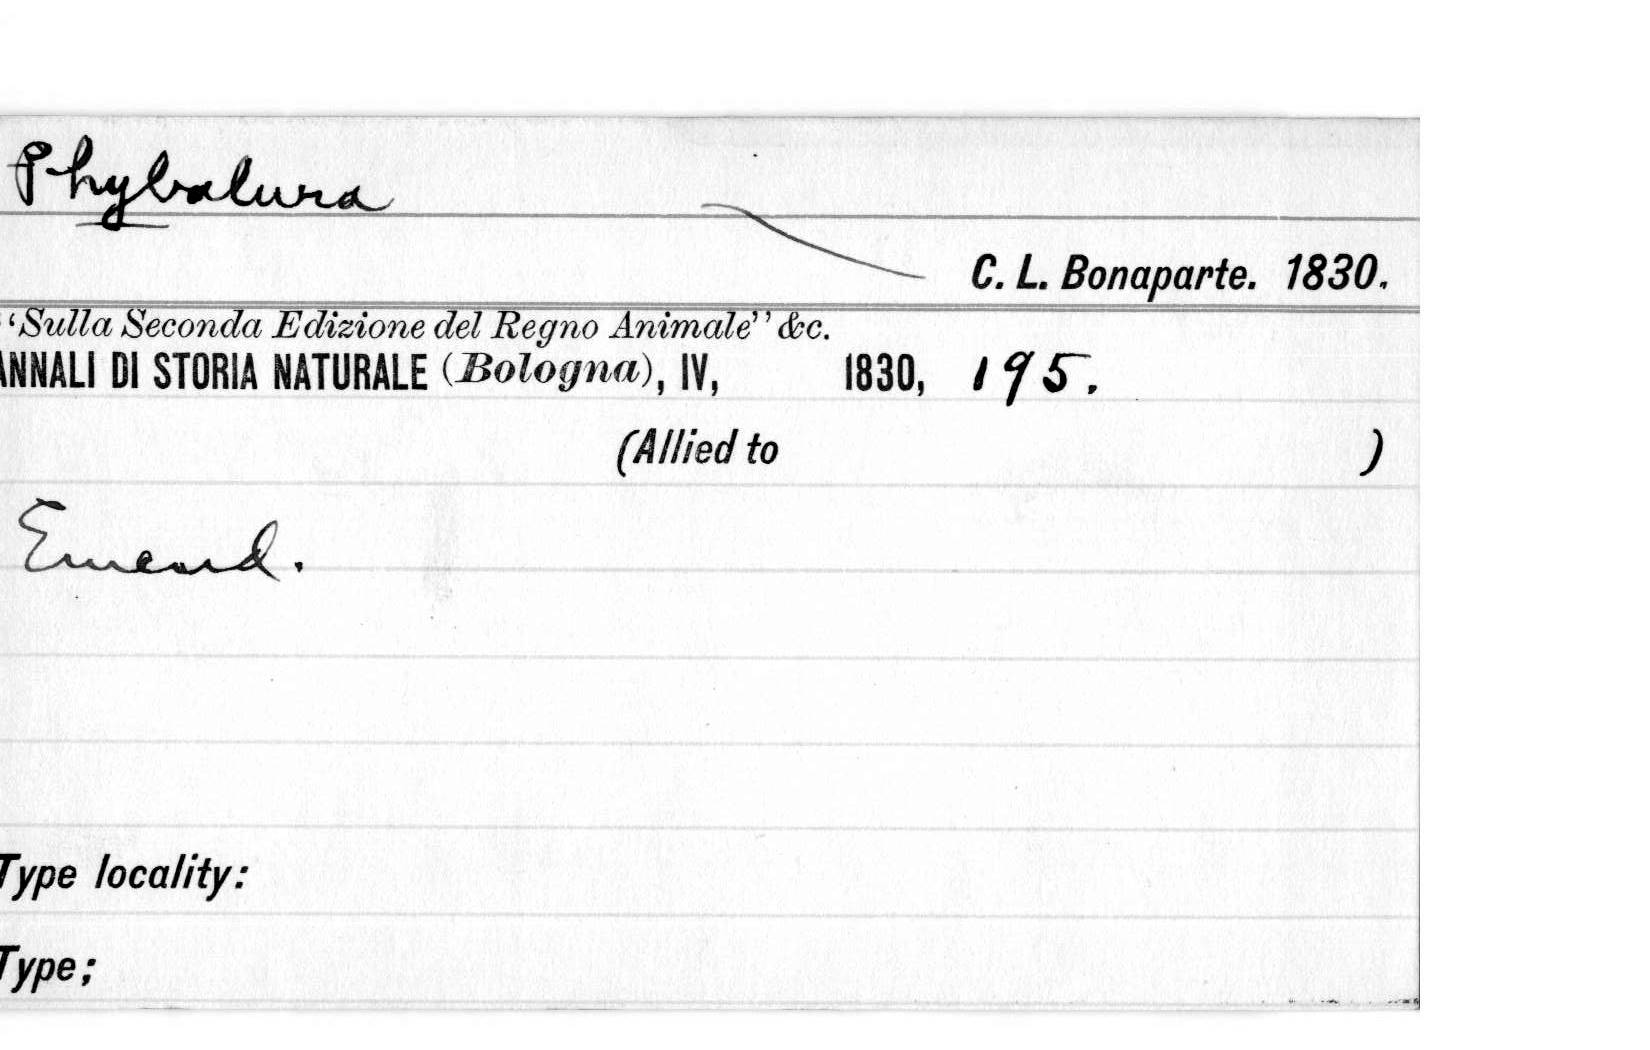 Phybalura
C. L. Bonaparte. 1830.
"Sulla Seconda Edizione del Regno Animale" &c.
ANNALI DI STORIA NATURALE (Bologna), IV, 1830, 195.
(Allied to )
Emend.
Type locality:
Type;